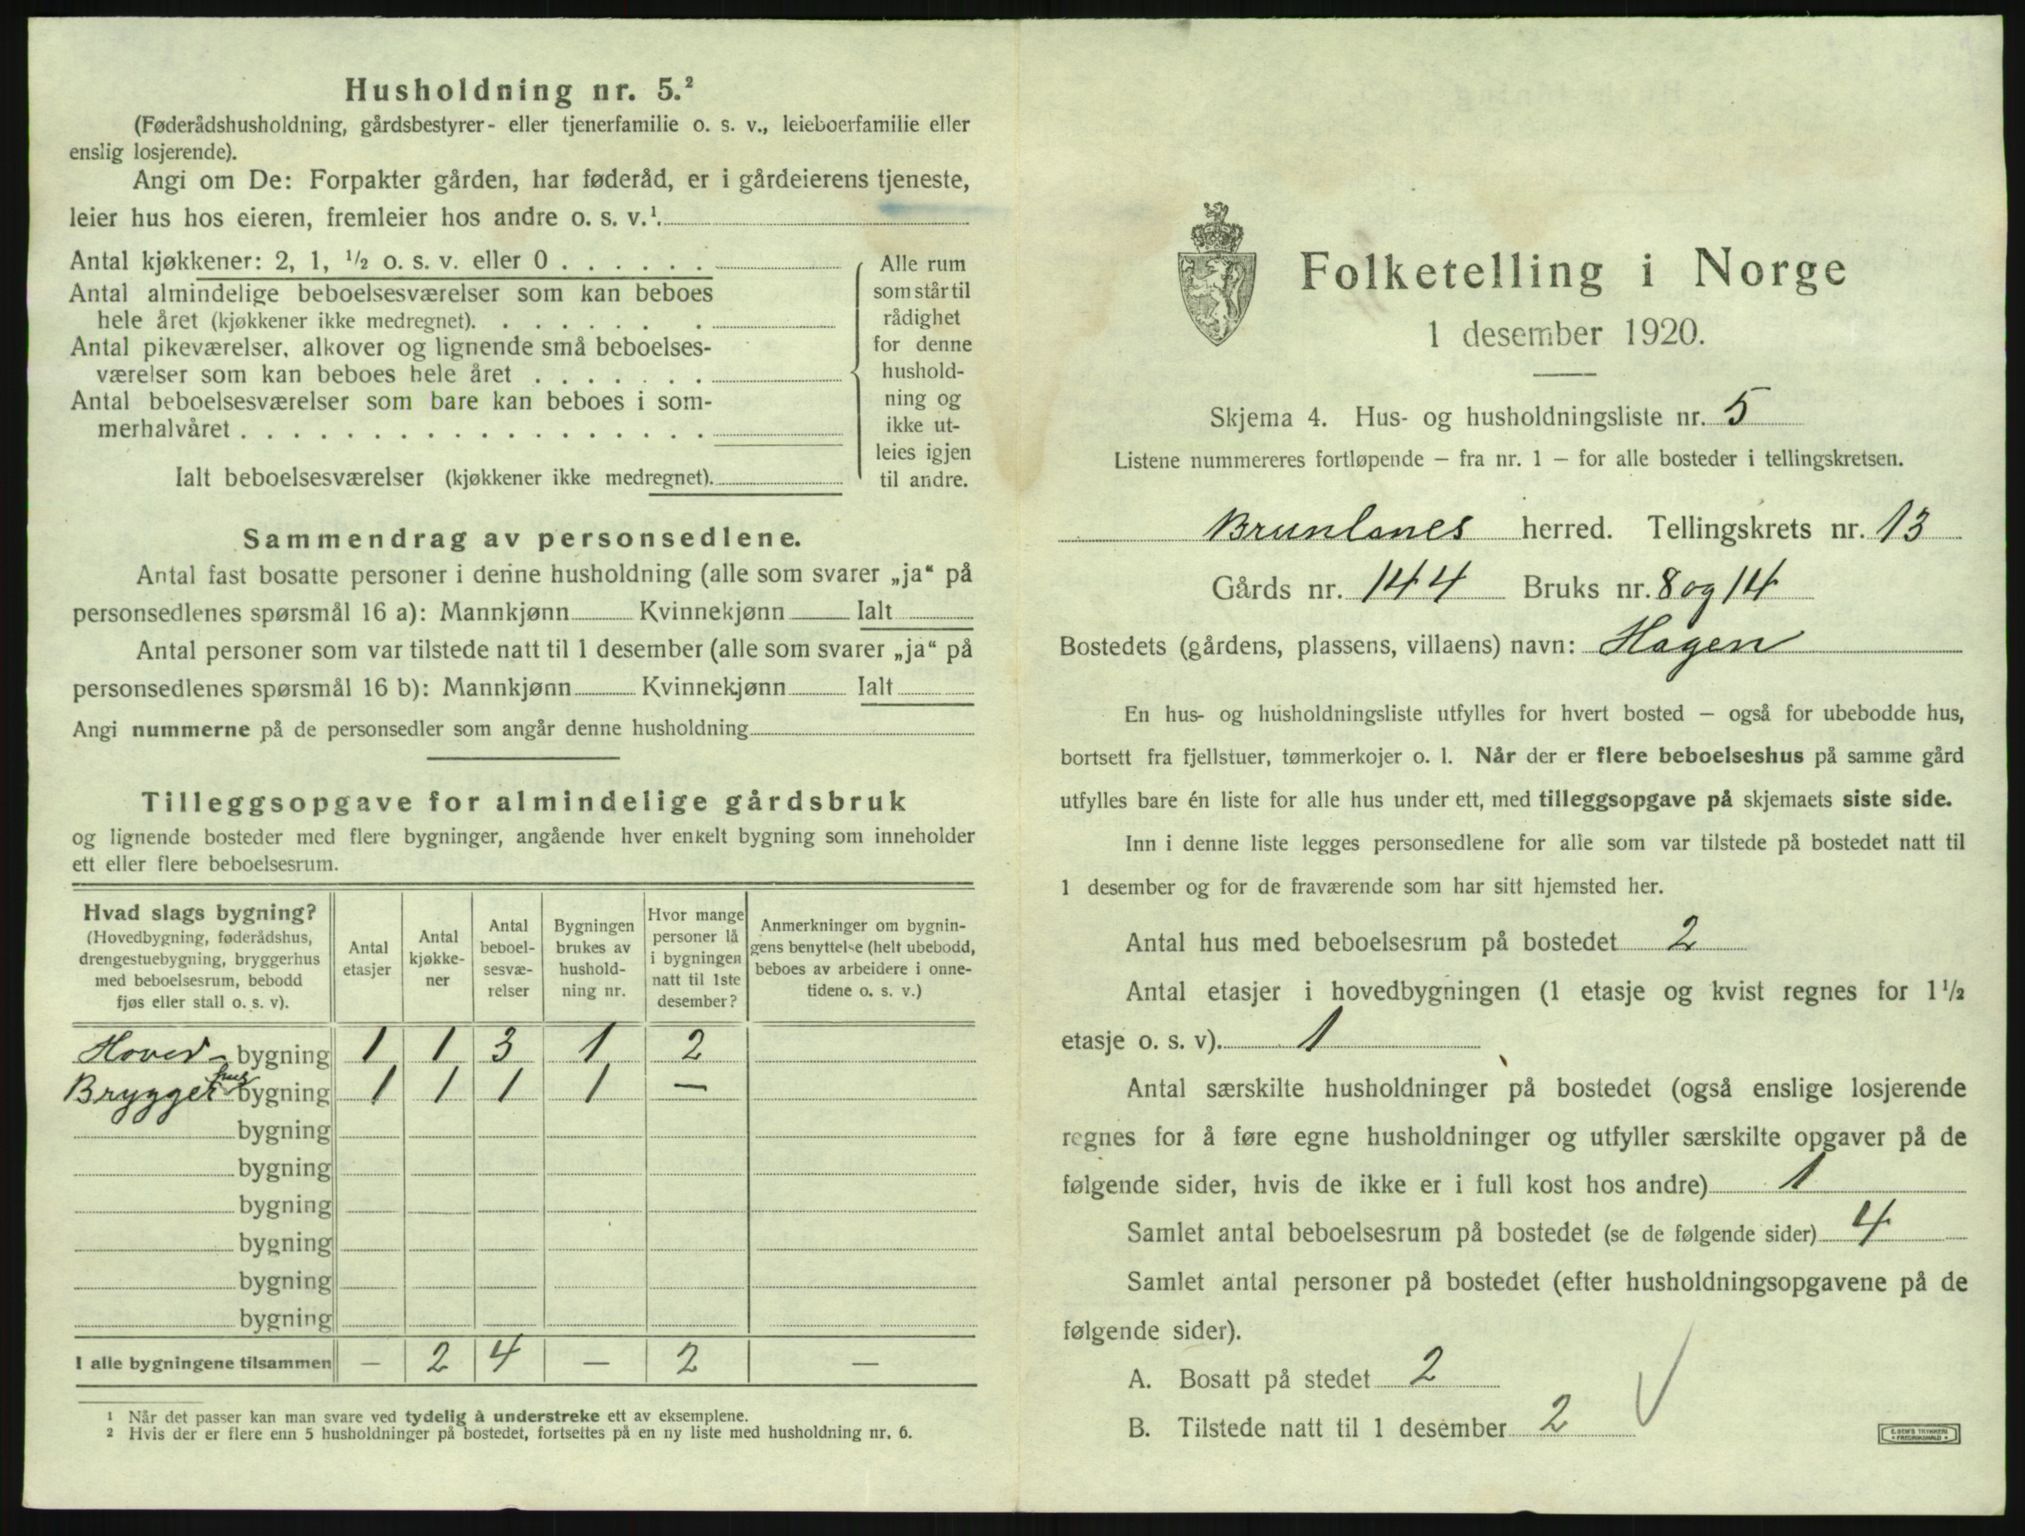 Husholdning nr. 5.²
(Føderådshusholdning, gårdsbestyrer- eller tjenerfamilie o. s. v., leieboerfamilie eller
enslig losjerende).
Angi om De: Forpakter gården, har føderåd, er i gårdeierens tjeneste,
leier hus hos eieren, fremleier hos andre o. s. v.¹.
Antal kjøkkener: 2, 1, ½ o. s. v. eller 0 . . . . . .
Antal almindelige beboelsesværelser som kan beboes
hele året (kjøkkener ikke medregnet). . . . . . . .
Antal pikeværelser, alkover og lignende små beboelses-
værelser som kan beboes hele året . . . . . . .
Antal beboelsesværelser som bare kan beboes i som-
merhalvåret . . . . . . . . . . . . . . . . . .
Ialt beboelsesværelser (kjøkkener ikke medregnet).
Alle rum
som står til
rådighet
for denne
hushold-
ning og
ikke ut-
leies igjen
til andre.
Sammendrag av personsedlene.
Antal fast bosatte personer i denne husholdning (alle som svarer „ja“ på
personsedlenes spørsmål 16 a): Mannkjønn Kvinnekjønn Ialt
Antal personer som var tilstede natt til 1 desember (alle som svarer „ja“ på
personsedlenes spørsmål 16 b): Mannkjønn Kvinnekjønn Ialt
Angi nummerne på de personsedler som angår denne husholdning
Tilleggsopgave for almindelige gårdsbruk
og lignende bosteder med flere bygninger, angående hver enkelt bygning som inneholder
ett eller flere beboelsesrum.
Hvad slags bygning?
(Hovedbygning, føderådshus,
drengestuebygning, bryggerhus
med beboelsesrum, bebodd
fjøs eller stall o. s. v).
Antal
etasjer
Antal
kjøkke-
ner
Antal
beboel-
sesvæ-
relser
Bygningen
brukes av
hushold-
ning nr.
Hvor mange
personer lå
i bygningen
natt til 1ste
desember?
Anmerkninger om bygnin-
gens benyttelse (helt ubebodd,
beboes av arbeidere i onne-
tidene o. s. v.)
Hoved- bygning 1 1 3 1 2
Bryggerhus bygning 1 1 1 1 —
bygning
bygning
bygning
bygning
bygning
bygning
I alle bygningene tilsammen — 2 4 — 2 —
¹ Når det passer kan man svare ved tydelig å understreke ett av eksemplene.
² Hvis der er flere enn 5 husholdninger på bostedet, fortsettes på en ny liste med husholdning nr. 6.
Folketelling i Norge
1 desember 1920.
Skjema 4. Hus- og husholdningsliste nr. 5
Listene nummereres fortløpende – fra nr. 1 – for alle bosteder i tellingskretsen.
Brunlanes herred. Tellingskrets nr. 13
Gårds nr. 144 Bruks nr. 8 og 14
Bostedets (gårdens, plassens, villaens) navn: Hagen
En hus- og husholdningsliste utfylles for hvert bosted – også for ubebodde hus,
bortsett fra fjellstuer, tømmerkojer o. l. Når der er flere beboelseshus på samme gård
utfylles bare én liste for alle hus under ett, med tilleggsopgave på skjemaets siste side.
Inn i denne liste legges personsedlene for alle som var tilstede på bostedet natt til
1 desember og for de fraværende som har sitt hjemsted her.
Antal hus med beboelsesrum på bostedet 2
Antal etasjer i hovedbygningen (1 etasje og kvist regnes for 1½
etasje o. s. v). 1
Antal særskilte husholdninger på bostedet (også enslige losjerende
regnes for å føre egne husholdninger og utfyller særskilte opgaver på de
følgende sider, hvis de ikke er i full kost hos andre) 1
Samlet antal beboelsesrum på bostedet (se de følgende sider) 4
Samlet antal personer på bostedet (efter husholdningsopgavene på de
følgende sider).
A. Bosatt på stedet 2
B. Tilstede natt til 1 desember 2
E. SEM'S TRYKKERI
FREDRIKSHALD